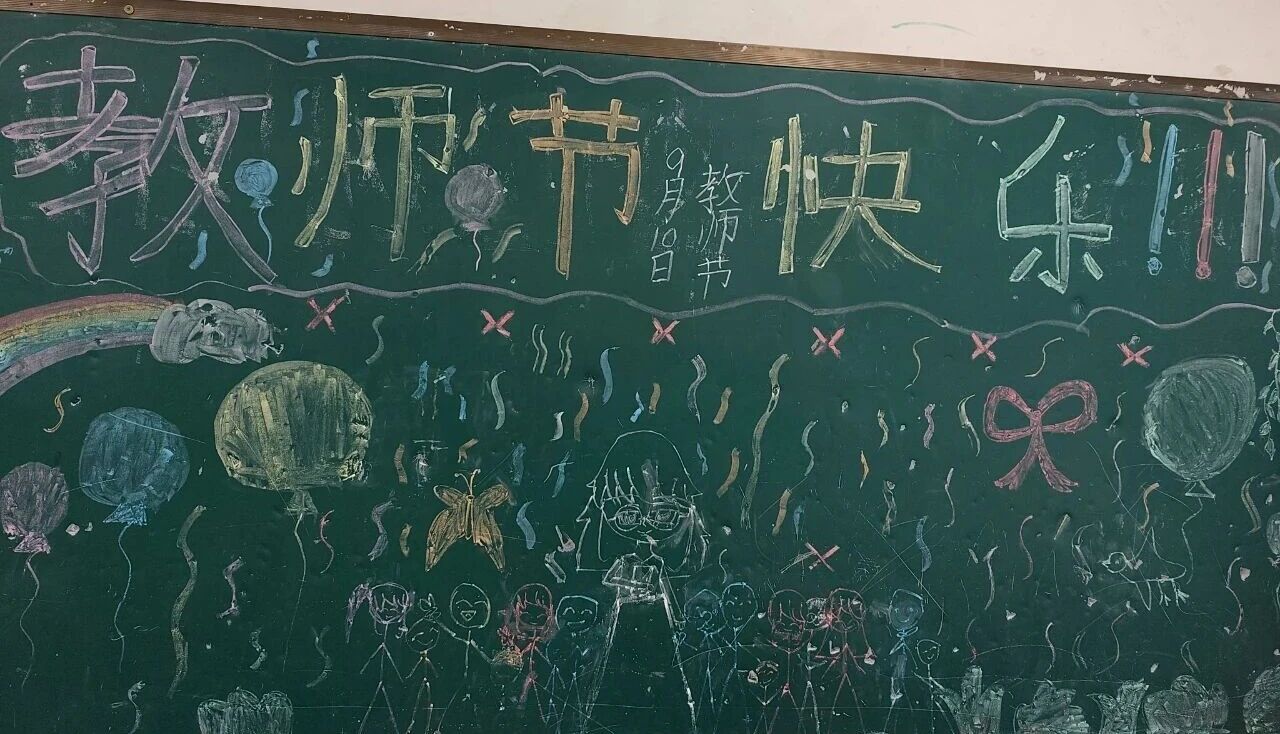 教师节快乐!!!
9月10日
教师节